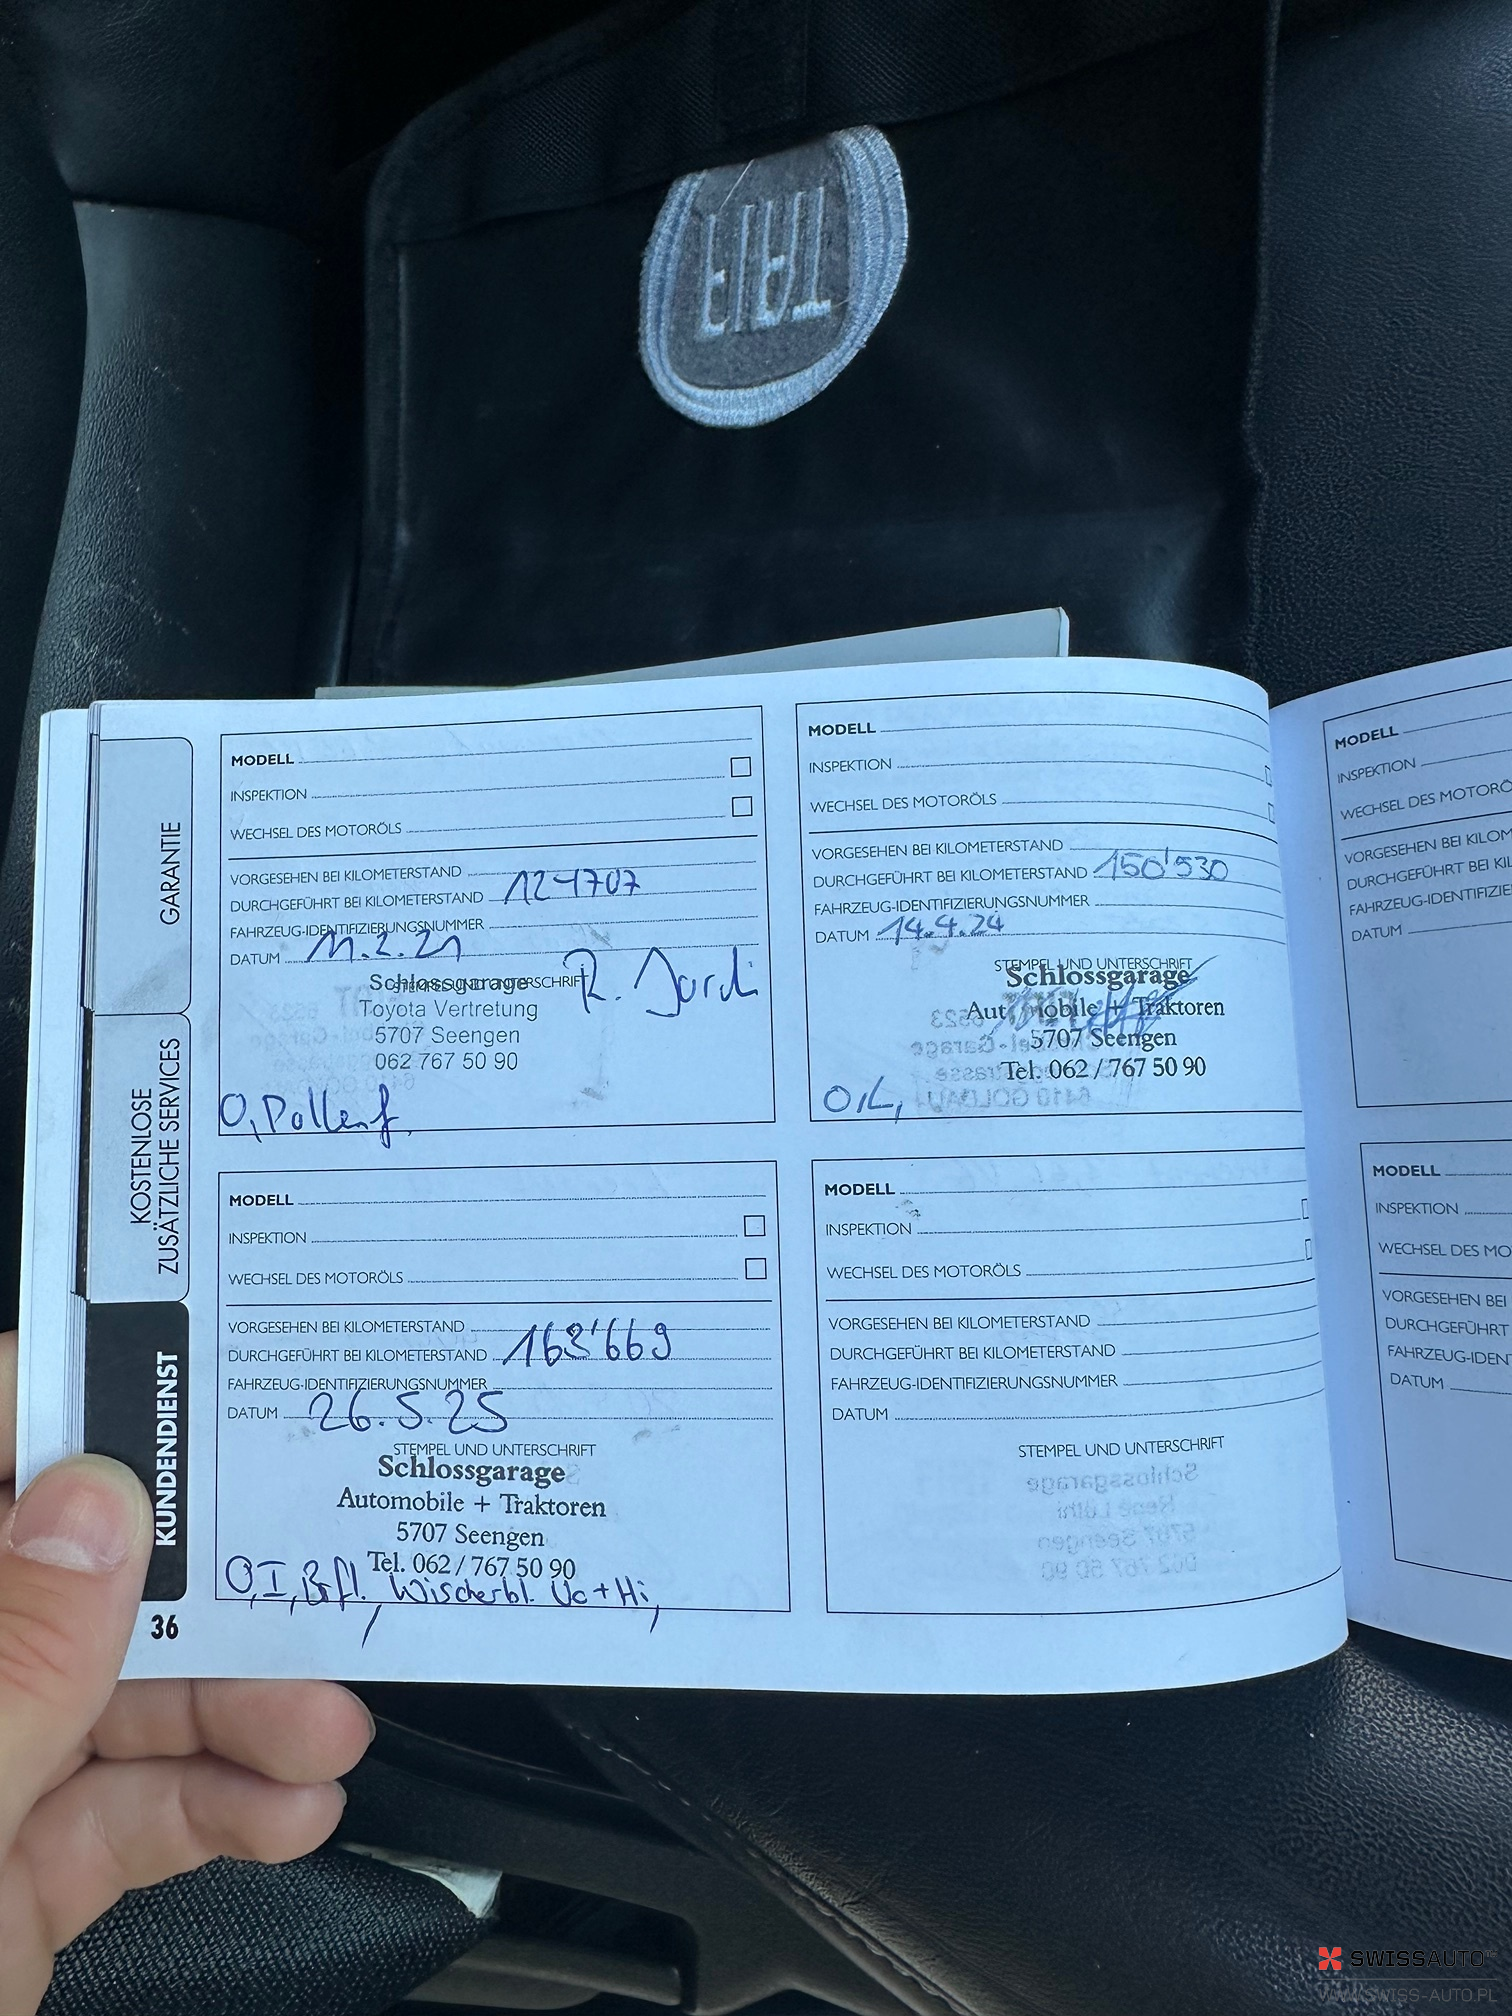 FIAT
GARANTIE
KOSTENLOSE
ZUSÄTZLICHE SERVICES
KUNDENDIENST
MODELL
INSPEKTION
WECHSEL DES MOTORÖLS
VORGESEHEN BEI KILOMETERSTAND
DURCHGEFÜHRT BEI KILOMETERSTAND
FAHRZEUG-IDENTIFIZIERUNGSNUMMER
DATUM 11.2.21
STEMPEL UND UNTERSCHRIFT
Schlossgarage
Toyota Vertretung
5707 Seengen
062 767 50 90
O, Pollenf.
MODELL
INSPEKTION
WECHSEL DES MOTORÖLS
VORGESEHEN BEI KILOMETERSTAND
DURCHGEFÜHRT BEI KILOMETERSTAND 150'530
FAHRZEUG-IDENTIFIZIERUNGSNUMMER
DATUM 14.4.24
STEMPEL UND UNTERSCHRIFT
Schlossgarage
Automobile + Traktoren
5707 Seengen
Tel. 062 / 767 50 90
MODELL
INSPEKTION
WECHSEL DES MOTORÖLS
VORGESEHEN BEI KILOMETERSTAND
DURCHGEFÜHRT BEI KILOMETERSTAND 163'669
FAHRZEUG-IDENTIFIZIERUNGSNUMMER
DATUM 26.5.25
STEMPEL UND UNTERSCHRIFT
Schlossgarage
Automobile + Traktoren
5707 Seengen
Tel. 062 / 767 50 90
O, I, Brfl., Wischerbl. Vo + Hi,
MODELL
INSPEKTION
WECHSEL DES MOTORÖLS
VORGESEHEN BEI KILOMETERSTAND
DURCHGEFÜHRT BEI KILOMETERSTAND
FAHRZEUG-IDENTIFIZIERUNGSNUMMER
DATUM
STEMPEL UND UNTERSCHRIFT
36
MODELL
INSPEKTION
WECHSEL DES MOTORÖ
VORGESEHEN BEI KILOM
DURCHGEFÜHRT BEI KIL
FAHRZEUG-IDENTIFIZIE
DATUM
MODELL
INSPEKTION
WECHSEL DES MO
VORGESEHEN BEI
DURCHGEFÜHRT
FAHRZEUG-IDEN
DATUM
SWISSAUTO
WWW.SWISS-AUTO.PL